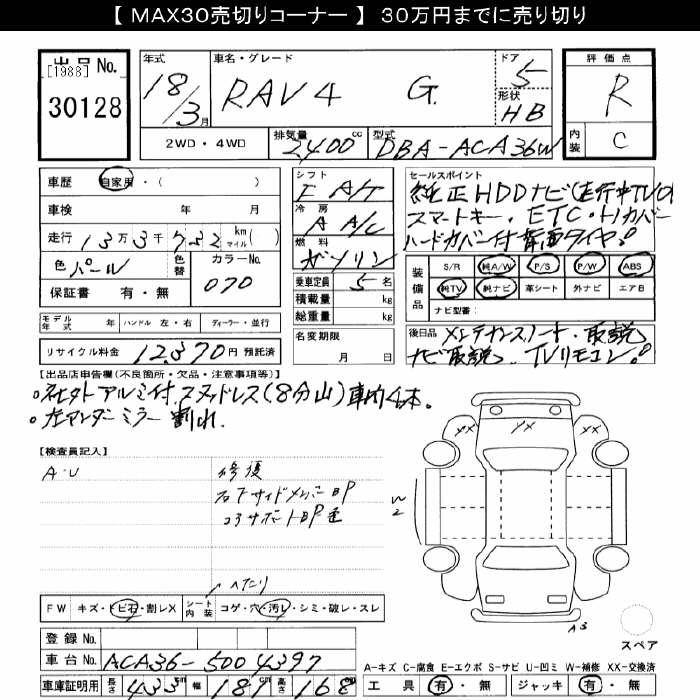 【 MAX30売切りコーナー 】 30万円までに売り切り
出品 No.
[1988]
30128
年式
18/3月
車名・グレード
RAV4 G.
ドア
5
形状
HB
評価点
R
内装
C
2WD・4WD
排気量
2400cc
型式
DBA-ACA36W
車歴
自家用・( )
車検 年 月
走行 13万3千732 km マイル ( )
色
パール
色替
カラーNo.
070
保証書 有・無
シフト
F A/T
冷房
A A/C
燃料
ガソリン
乗車定員 5 名
積載量 kg
総重量 kg
名変期限
月 日
セールスポイント
純正HDDナビ(走行中TV○)
スマートキー・ETC・トノカバー
ハードカバー付 背面タイヤ。
装備品
S/R 純A/W P/S P/W ABS
純TV 純ナビ 革シート 外ナビ エアB
ナビ型番:
モデル年式 年 ハンドル 左・右 ディーラー・並行
リサイクル料金 12,370円 預託済
後日品 メンテナンスノート・取説
ナビ取説、TVリモコン。
【出品店申告欄(不良箇所・欠品・注意事項等)】
。社外アルミ付スタッドレス(8分山)車内4本。
。左マンダーミラー割れ
【検査員記入】
A・U
修復
右下サイドメンバーBP
コアサポートBP歪
XX
XX
XX
W2
A3
スペア
へたり
FW キズ・トビ石・割レX
シート内装 コゲ・穴・汚レ・シミ・破レ・スレ
登録 No.
車台 No. ACA36-5004397
車庫証明用 長さ 433cm 幅 181cm 高さ 168cm
A-キズ C-腐食 E-エクボ S-サビ U-凹ミ W-補修 XX-交換済
工具 有・無 ジャッキ 有・無